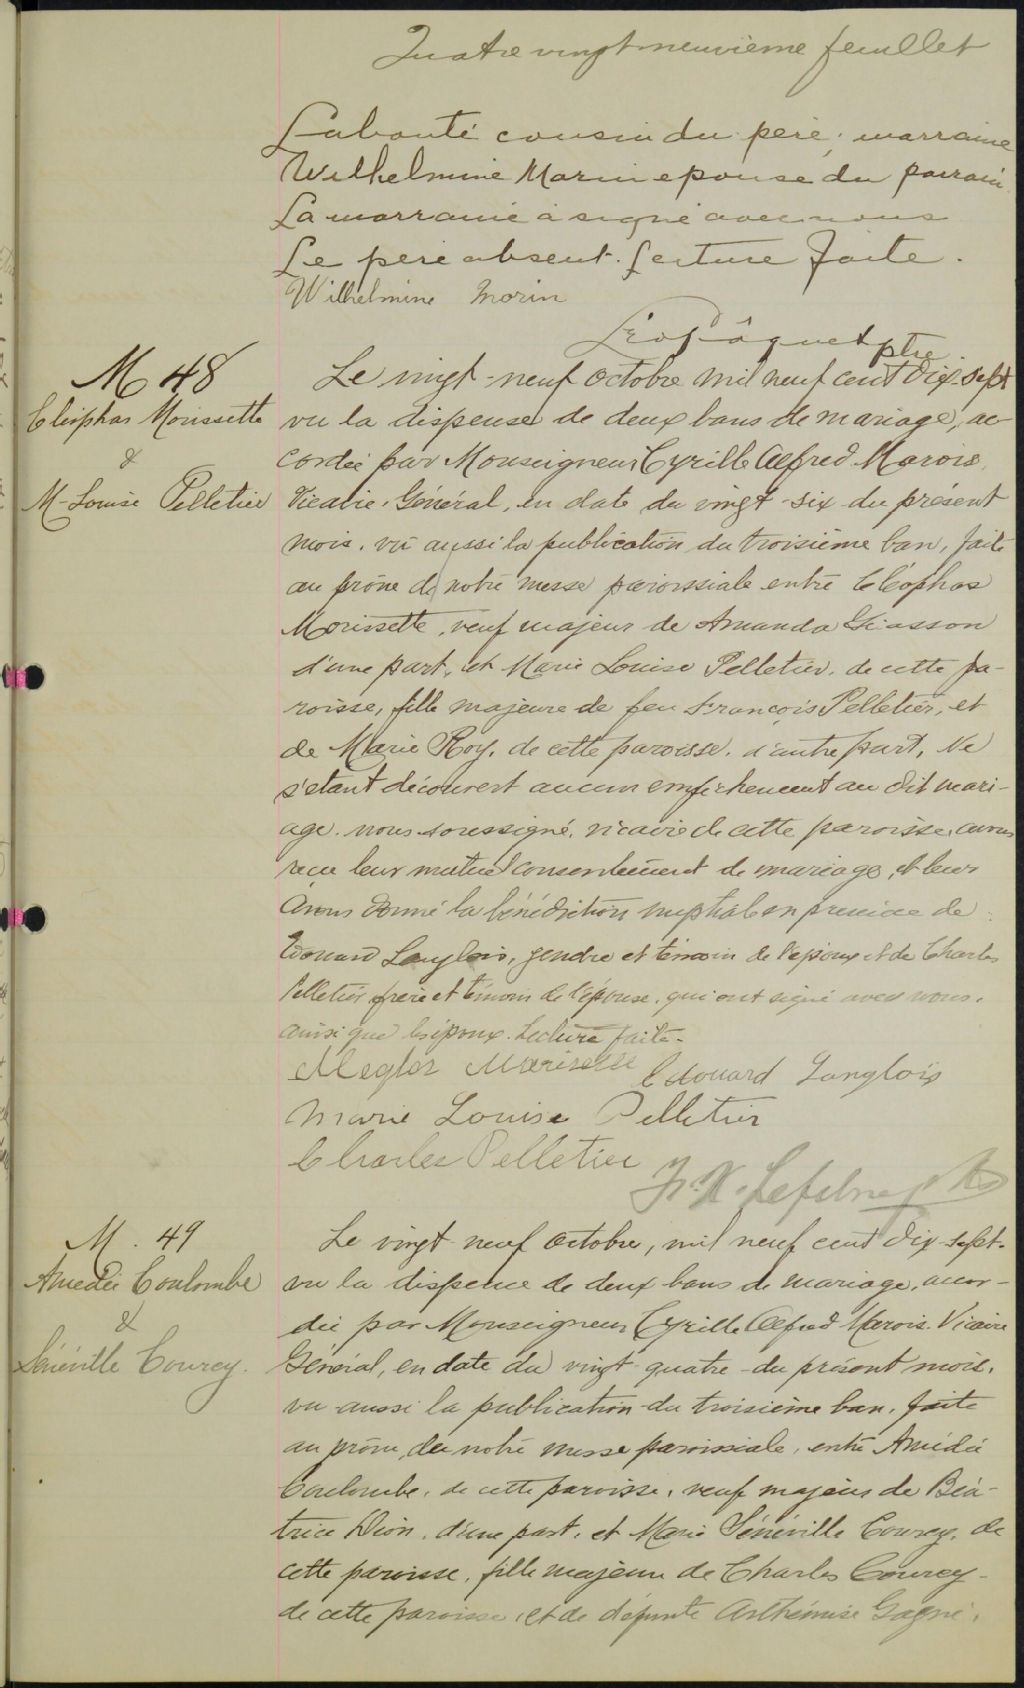 Quatre vingt neuvième feuillet
Labonté cousin du père, marraine
Wilhelmine Morin epouse du parrain.
La marraine a signé avec nous
Le père absent. Lecture faite.
Wilhelmine Morin
Léo Pâquet ptre
M 48
Cléophas Morissette
&
M-Louise Pelletier
Le vingt-neuf octobre mil neuf cent dix-sept
vu la dispense de deux bans de mariage, ac-
cordée par Monseigneur Cyrille Alfred Marois,
Vicaire-Général, en date du vingt-six du présent
mois, vu aussi la publication du troisième ban, faite
au prône de notre messe paroissiale entre Cléophas
Morissette, veuf majeur de Amanda Giasson
d'une part, et Marie Louise Pelletier, de cette pa-
roisse, fille majeure de feu François Pelletier, et
de Marie Roy, de cette paroisse, d'autre part, Ne
s'etant découvert aucun empêchement au dit mari-
age, nous soussigné, vicaire de cette paroisse, avons
reçu leur mutuel consentement de mariage, et leur
avons donné la bénédiction nuptiale en présence de
Edouard Langlois, gendre et témoin de l'époux et de Charles
Pelletier frère et témoin de l'épouse, qui ont signé avec nous,
ainsi que les époux. Lecture faite.
Morissette
Edouard Langlois
Marie Louise Pelletier
Charles Pelletier
F. X. Lefebvre ptre
M. 49
Amédée Coulombe
&
Sénéville Courcy.
Le vingt neuf octobre, mil neuf cent dix-sept-
vu la dispense de deux bans de mariage, accor-
dée par Monseigneur Cyrille Alfred Marois. Vicaire
Général, en date du vingt-quatre du présent mois,
vu aussi la publication du troisième ban, faite
au prône de notre messe paroissiale, entre Amédée
Coulombe, de cette paroisse, veuf majeur de Béa-
trice Dion, d'une part, et Marie Sénéville Courcy, de
cette paroisse, fille majeure de Charles Courcy-
de cette paroisse, et de défunte Arthémise Gagné,